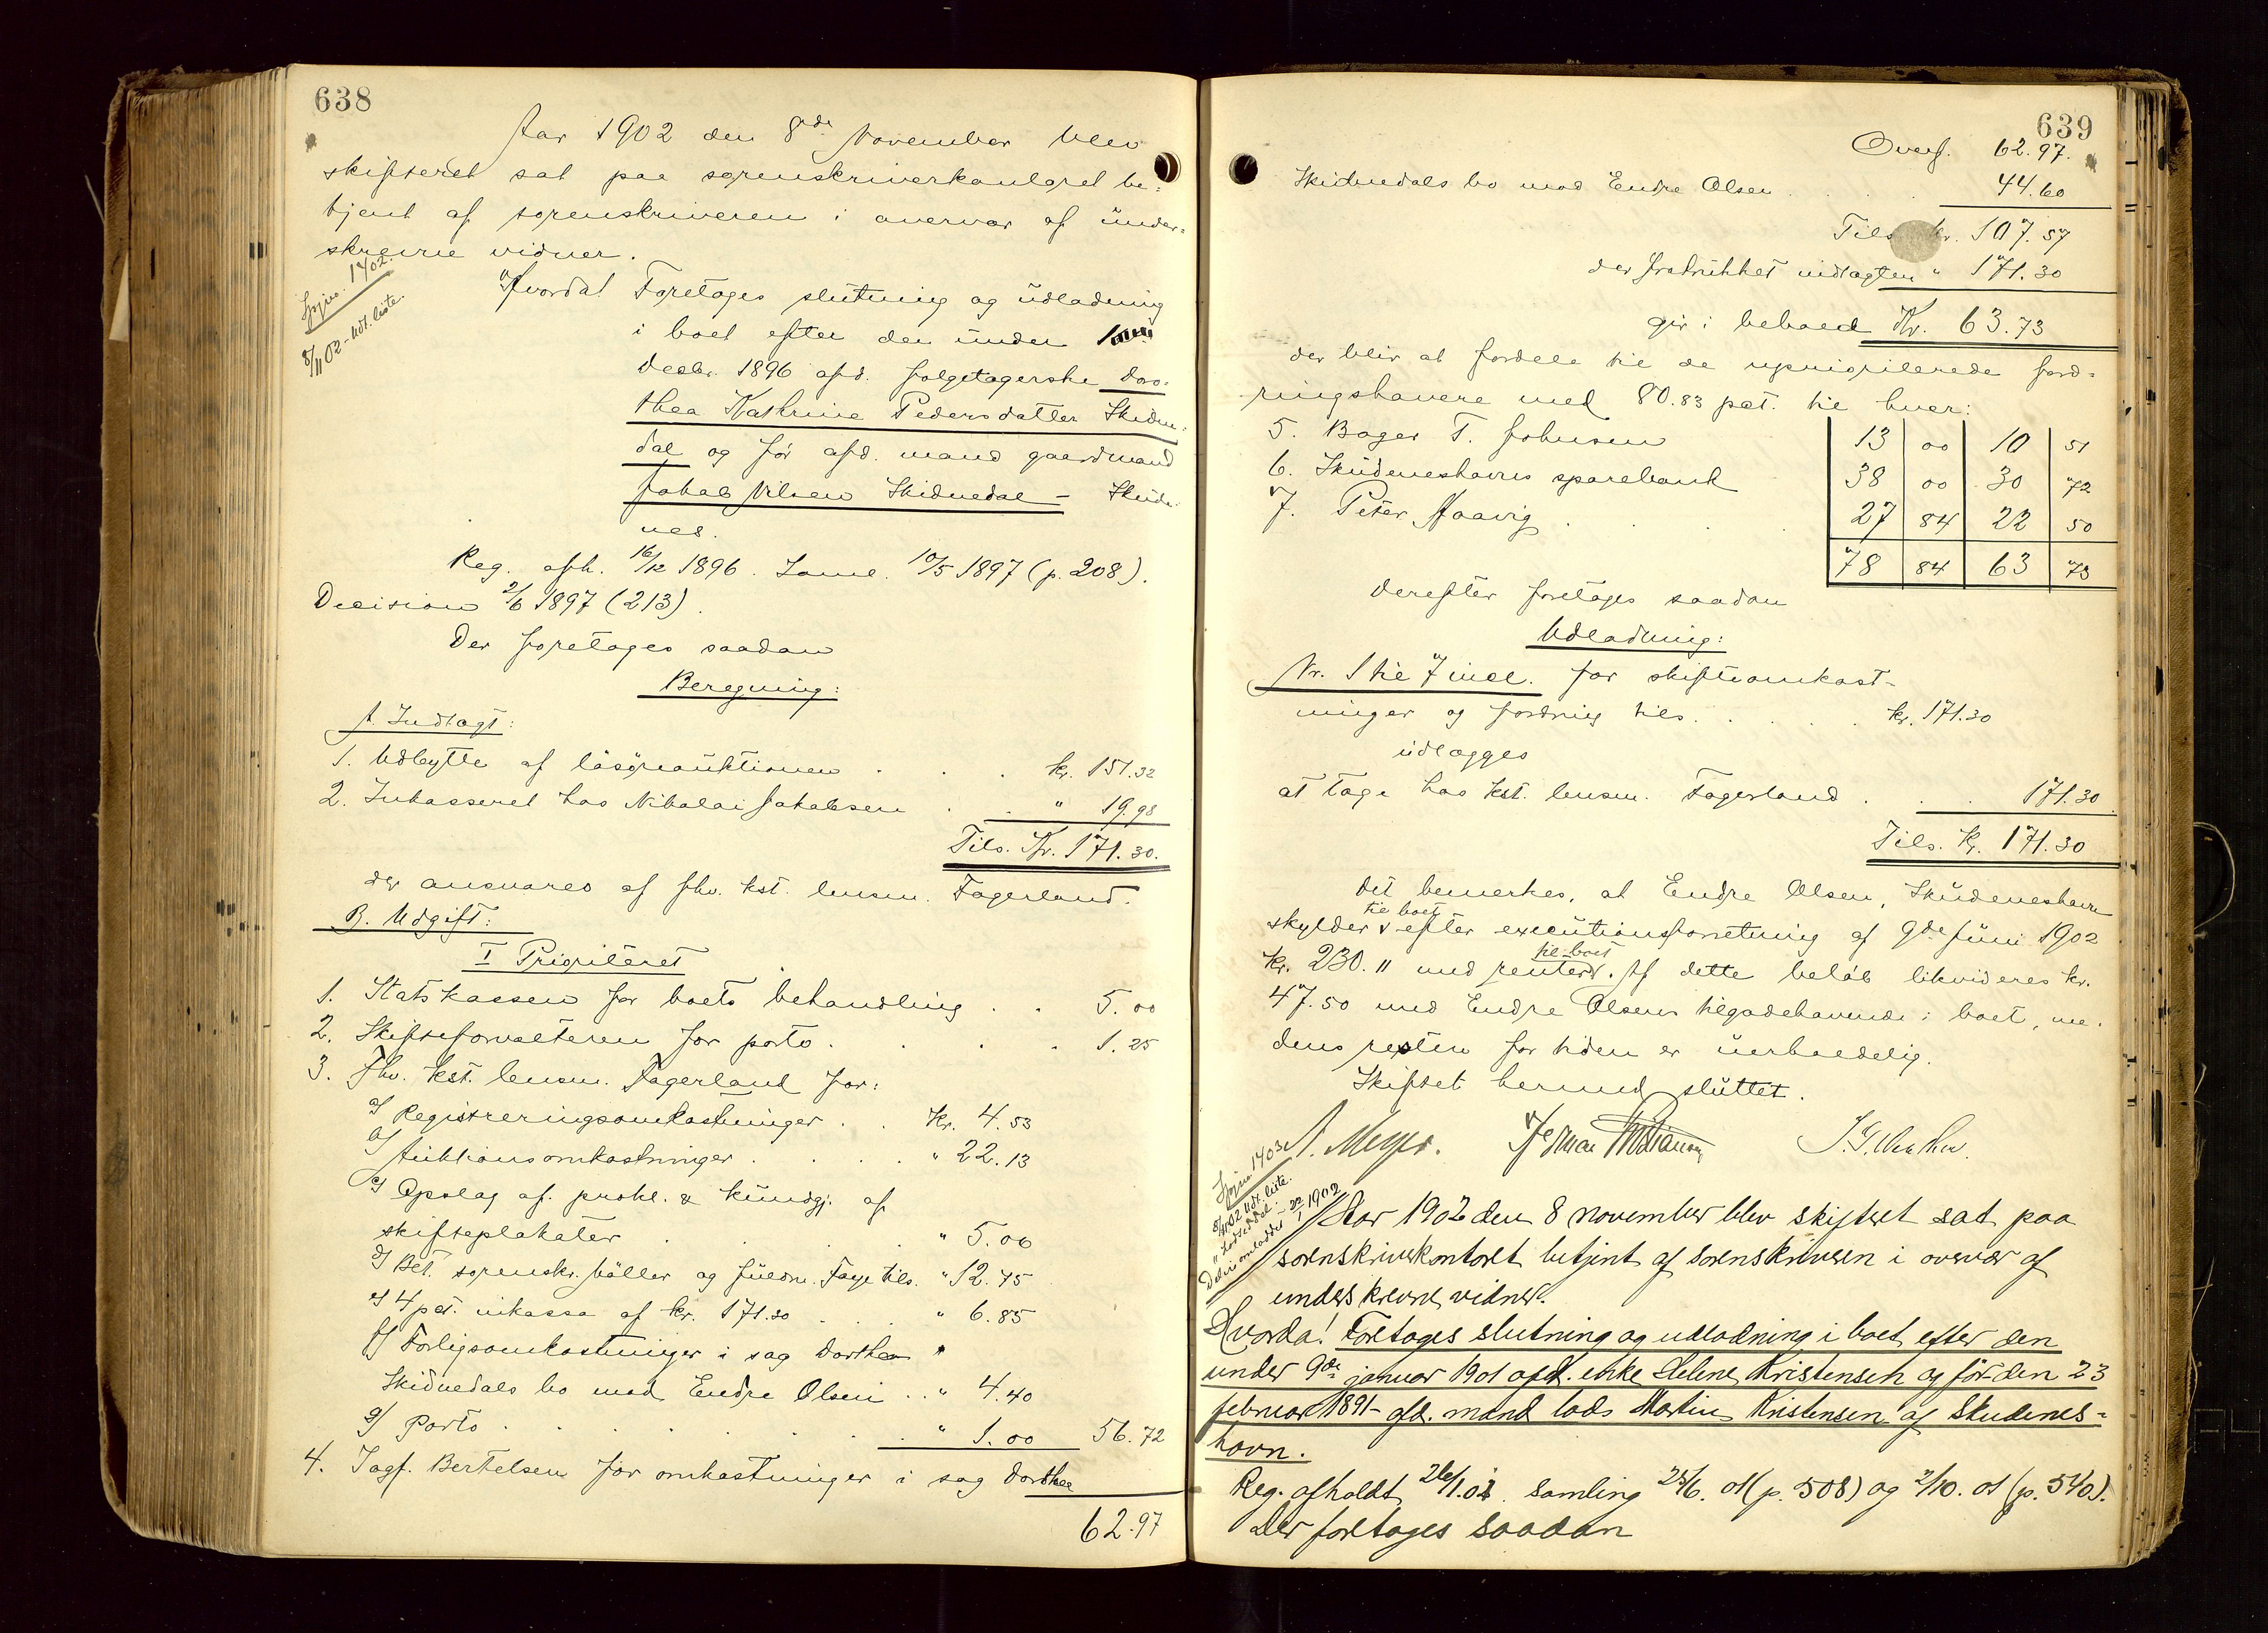 638
Aar 1902 den 8de November blev
skifteret sat paa sorenskriverkontoret be-
tjent af sorenskriveren i overvær af under-
skrevne vidner.
Hjno. 1402.
8/11 02 - udl. liste.
Hvorda! Foretages slutning og udlodning
i boet efter den under
Decbr. 1896 afd. følgetagerske Doro-
thea Kathrine Pedersdatter Skidne-
dal og før afd. mand gaardmand
Jakob Nilsen Skidnedal – Skude-
nes.
Reg. afh. 16/12 1896. Saml. 10/5 1897 (p. 208).
Decision 2/6 1897 (213).
Der foretages saadan
Beregning:
A. Indtægt:
1. Udbytte af løsøreauktionen . . . kr. 151.32
2. Inkasseret hos Nikolai Jakobsen . . " 19.98
Tils. Kr. 171.30.
der ansvares af fhv. kst. lensm. Fagerland.
B. Udgift:
I Prioriteret
1. Statskassen for boets behandling . . 5.00
2. Skifteforvalteren for porto . . . . 1.25
3. Fhv. kst. lensm. Fagerland for:
a/ Registreringsomkostninger . . Kr. 4.53
b/ Auktionsomkostninger . . . . " 22.13
c/ Opslag af prokl. & kundgj. af
skifteplakater . . . " 5.00
d/ Bet. sorenskr. Møller og fuldm. Faye tils. " 12.75
e/ 4 pct. inkasso af kr. 171.30 . . . " 6.85
f/ Forligsomkostninger i sag Dorthea "
Skidnedals bo mod Endre Olsen . . " 4.40
g/ Porto . . . . . . . " 1.00 56.72
4. Sagf. Bertelsen for omkostninger i sag Dorthea
62.97
639
Overf. 62.97.
Skidnedals bo mod Endre Olsen . . . . 44.60
Tils. kr. 107.57
der fratrukket indtægten " 171.30
gir i behold Kr. 63.73
der blir at fordele til de uprioriterede ford-
ringshavere med 80.83 pct. til hver:
5. Bager T. Johnsen 13 00 10 51
6. Skudeneshavns sparebank 38 00 30 72
7. Peter Haavig . . . 27 84 22 50
78 84 63 73
Derefter foretages saadan
Udlodning:
Nr. 1 til 7 incl. for skifteomkost-
ninger og fordring tils. . . . . kr. 171.30
udlægges
at tage hos kst. lensm. Fagerland . . . 171.30
Tils. Kr. 171.30
Det bemerkes, at Endre Olsen, Skudeneshavn
skylder til boet efter executionsforretning af 9de juni 1902
kr. 230. " med renter til boet. Af dette beløb likvideres kr.
47.50 med Endre Olsens tilgodehavende i boet, me-
dens resten for tiden er uerholdelig.
Skiftet hermed sluttet.
A. Meyer.
Hjno 1403
8/11 02 udl. liste.
" lodseddel.
22/1 1902
Aar 1902 den 8 november blev skifteret sat paa
sorenskriverkontoret betjent af sorenskriveren i overvær af
underskrevne vidner.
Hvorda! Foretages slutning og udlodning i boet efter den
under 9de januar 1901 afd. enke Helene Kristensen og før den 23
februar 1891 afd. mand lods Martin Kristensen af Skudenes-
havn.
Reg. afholdt 26/1.01. Samling 25/6. 01 (p. 508) og 2/10. 01 (p. 540).
Der foretages saadan